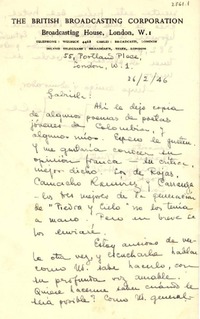 2861.1
THE BRITISH BROADCASTING CORPORATION
Broadcasting House, London, W.1
TELEPHONE: WELBECK 4468 CABLES: BROADCASTS, LONDON
INLAND TELEGRAMS: BROADCASTS, PHONE, LONDON
55, Portland Place,
London, W.1.
26/I/46
Gabriela:
Ahí le dejo copia
de algunos poemas de poetas
jóvenes de Colombia, y
algunos míos. Espero le gusten,
y me gustaría conocer su
opinión franca — su crítica,
mejor dicho. Los de Rojas,
Camacho Ramírez y Carranza
— los tres mejores de la generación
de "Piedra y Cielo" no los tenía
a mano. Pero en breve se
los enviaré.
Estoy ansioso de verla
otra vez, y escucharla hablar
como Ud. sabe hacerlo, con
su profunda voz amable.
Quiere hacerme saber cuándo le
será posible? Como Ud. general-